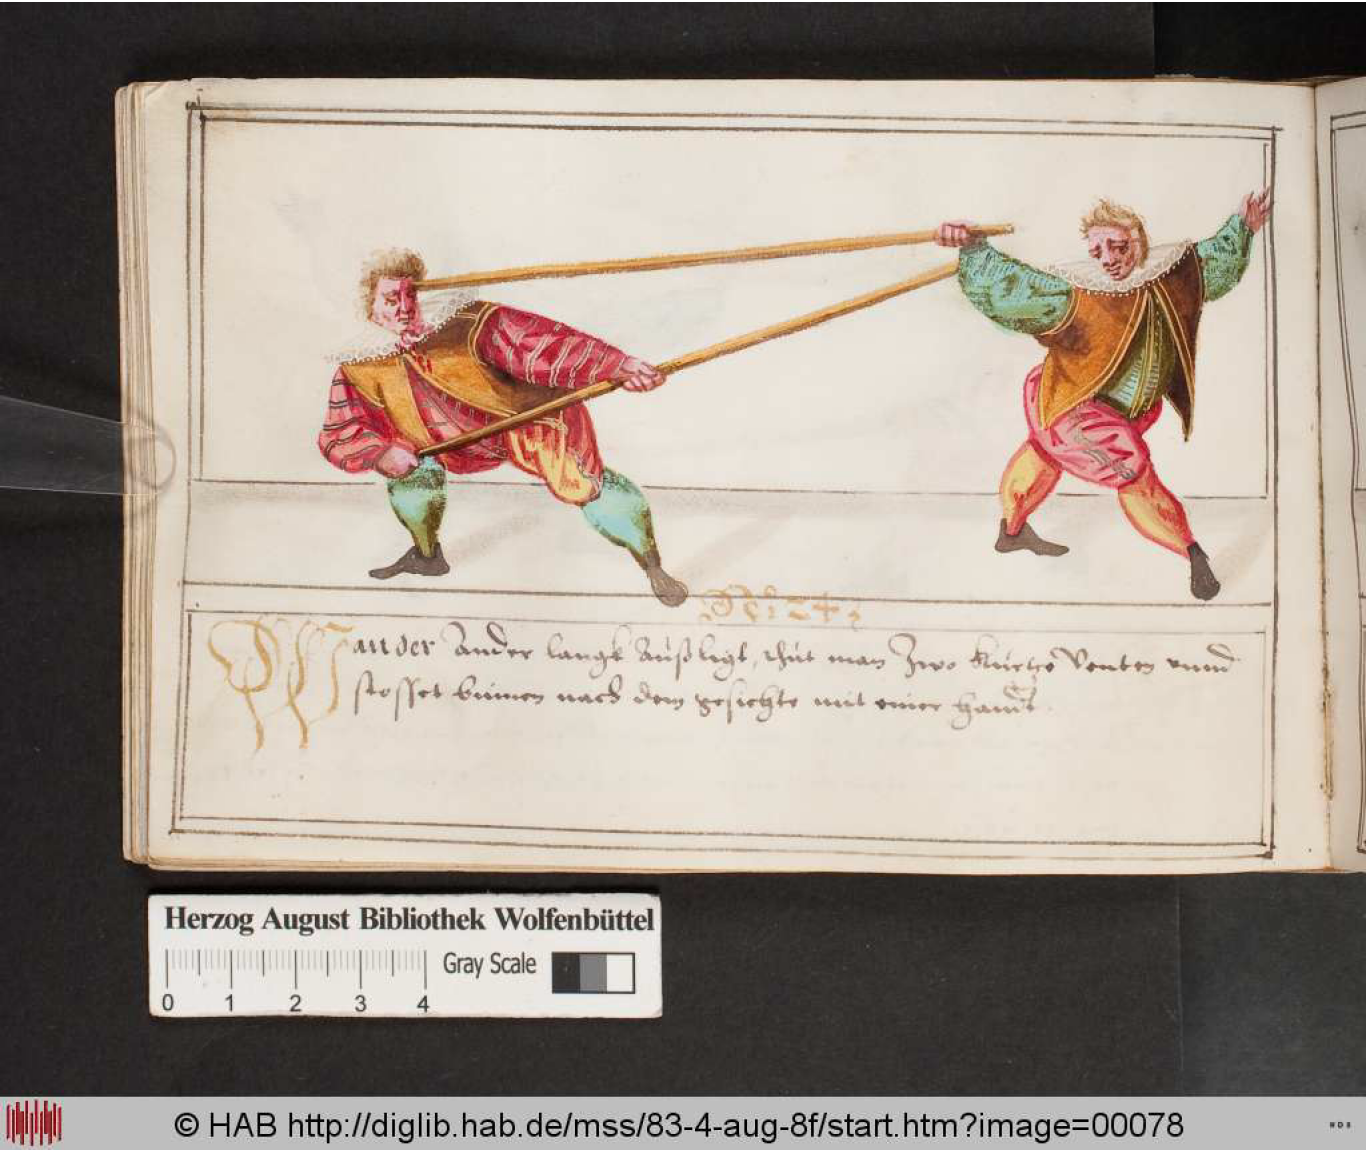 No: 124
Wan der Ander langk Außligt, thut man Zwo Kurtze Venten vnnd
stosset binnen nach dem gesichte mit einer handt.
Herzog August Bibliothek Wolfenbüttel
Gray Scale
0 1 2 3 4
© HAB http://diglib.hab.de/mss/83-4-aug-8f/start.htm?image=00078